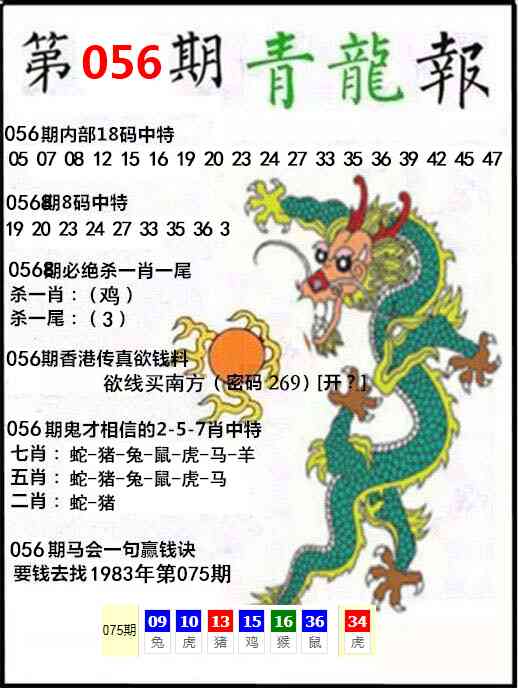 第056期青龍報
056期内部18码中特
05 07 08 12 15 16 19 20 23 24 27 33 35 36 39 42 45 47
056期8码中特
19 20 23 24 27 33 35 36 3
056期必绝杀一肖一尾
杀一肖：（鸡）
杀一尾：（3）
056期香港传真欲钱料
欲线买南方（密码 269）[开？]
056期鬼才相信的2-5-7肖中特
七肖：蛇-猪-兔-鼠-虎-马-羊
五肖：蛇-猪-兔-鼠-虎-马
二肖：蛇-猪
056期马会一句赢钱诀
要钱去找1983年第075期
075期 09 10 13 15 16 36 34
兔 虎 猪 鸡 猴 鼠 虎